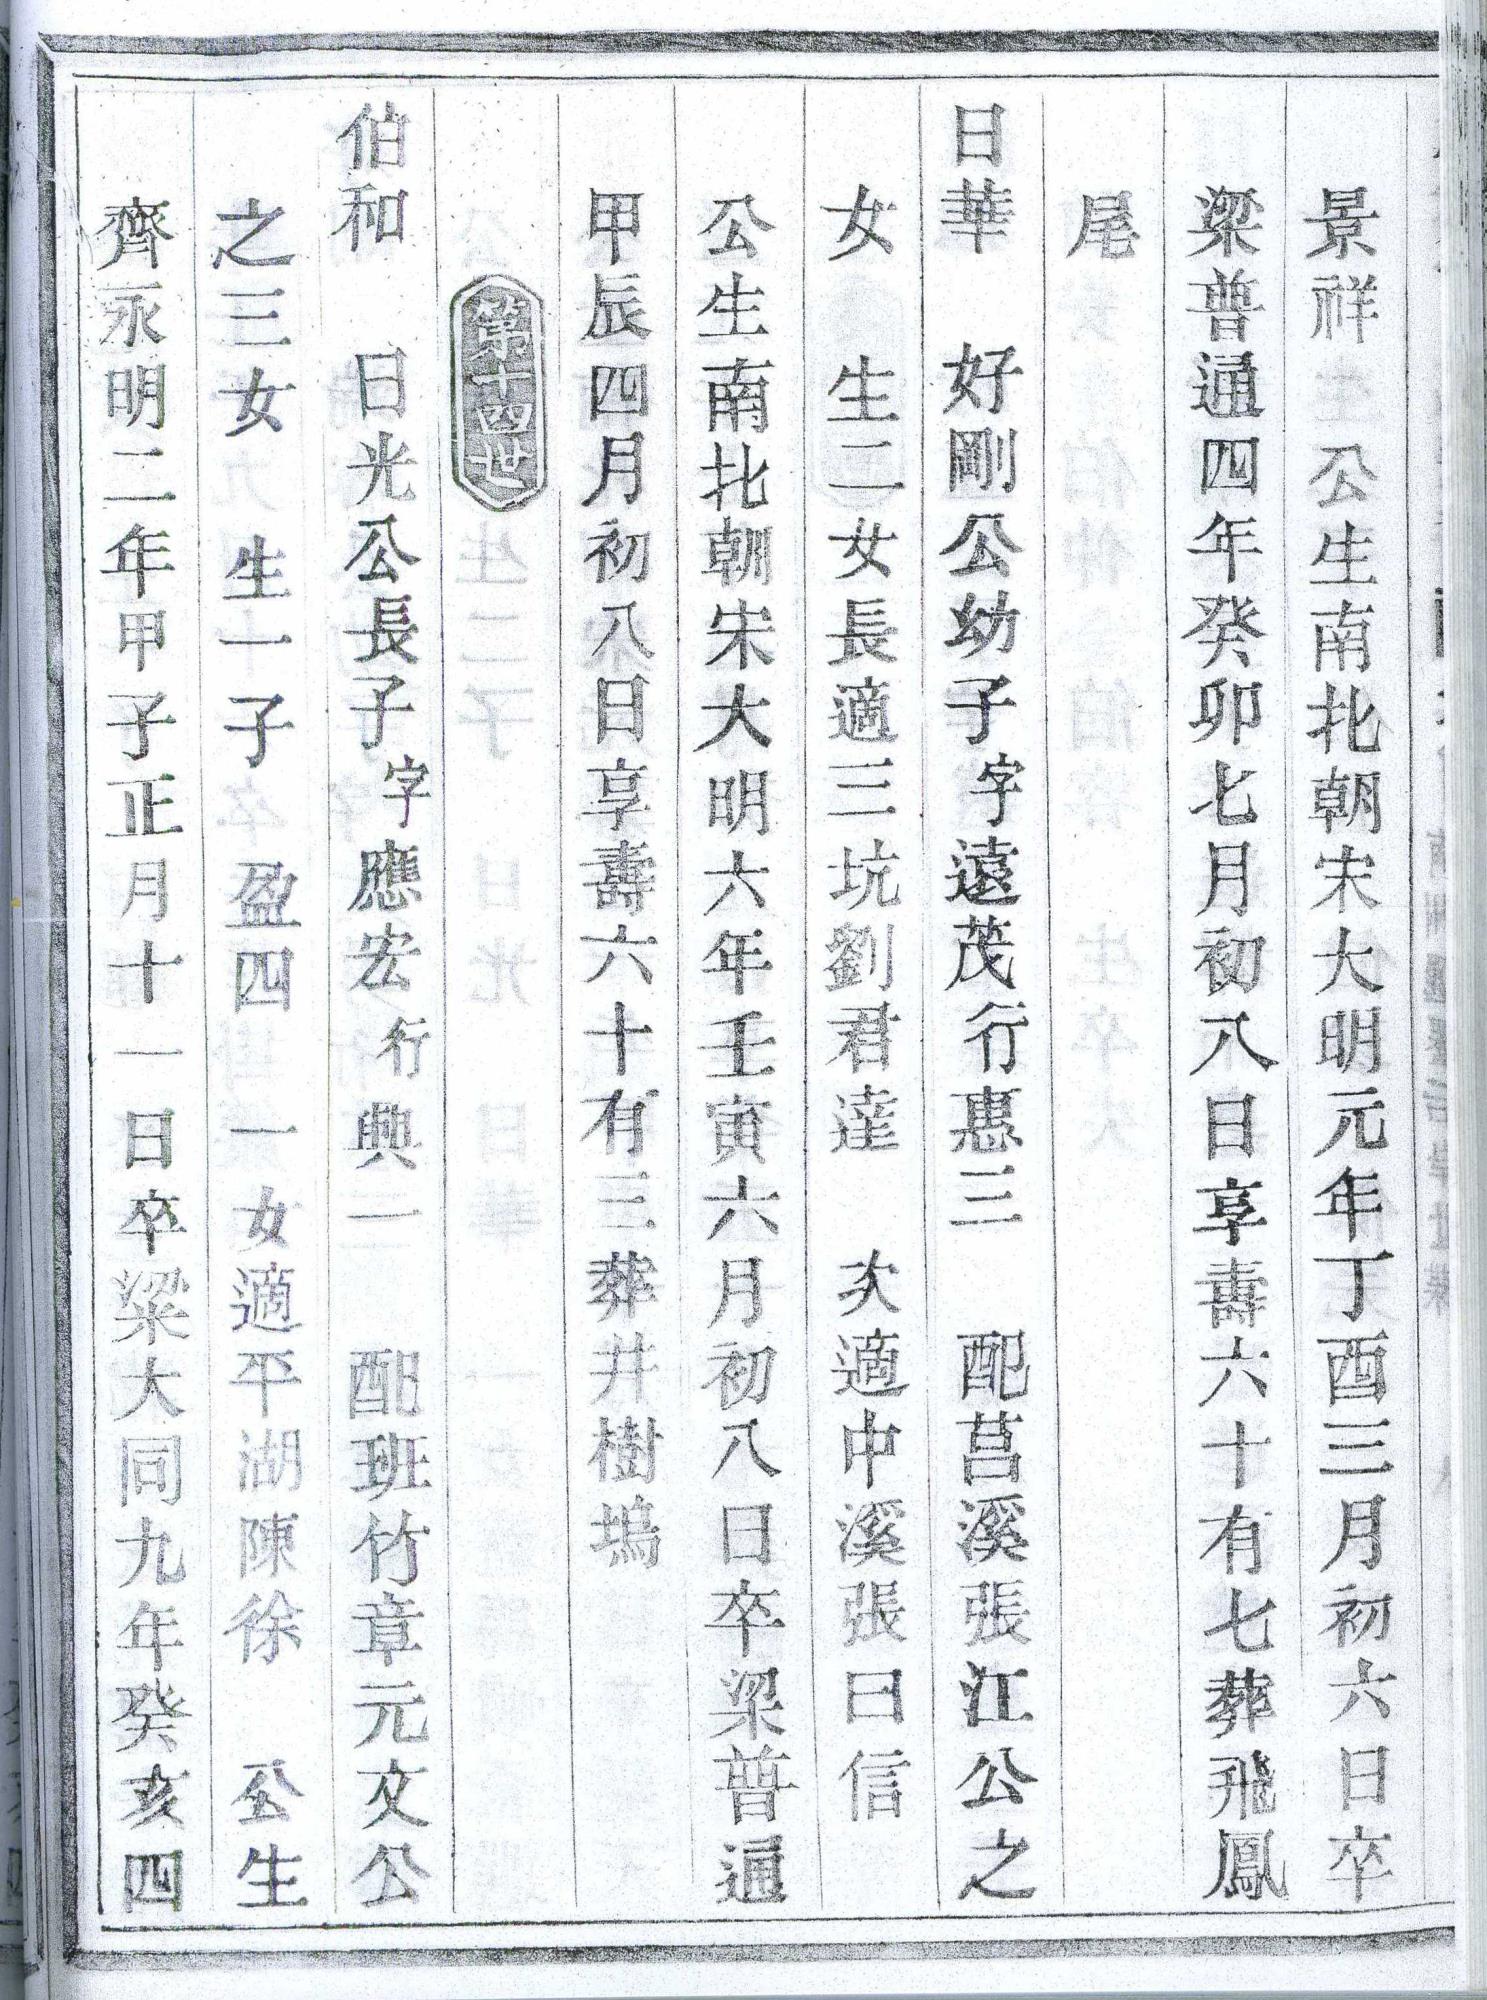 景祥 公生南北朝宋大明元年丁酉三月初六日卒
梁普通四年癸卯七月初八日享壽六十有七葬飛鳳
尾
日華 好剛公幼子字遠茂行惠三 配莒溪張江公之
女 生二女長適三坑劉君達 次適中溪張日信
公生南北朝宋大明六年壬寅六月初八日卒梁普通
甲辰四月初八日享壽六十有三葬井樹塢
第十四世
伯和 日光公長子字應宏行興二 配班竹章元文公
之三女 生一子 盈四 一女適平湖陳徐 公生
齊永明二年甲子正月十一日卒梁大同九年癸亥四